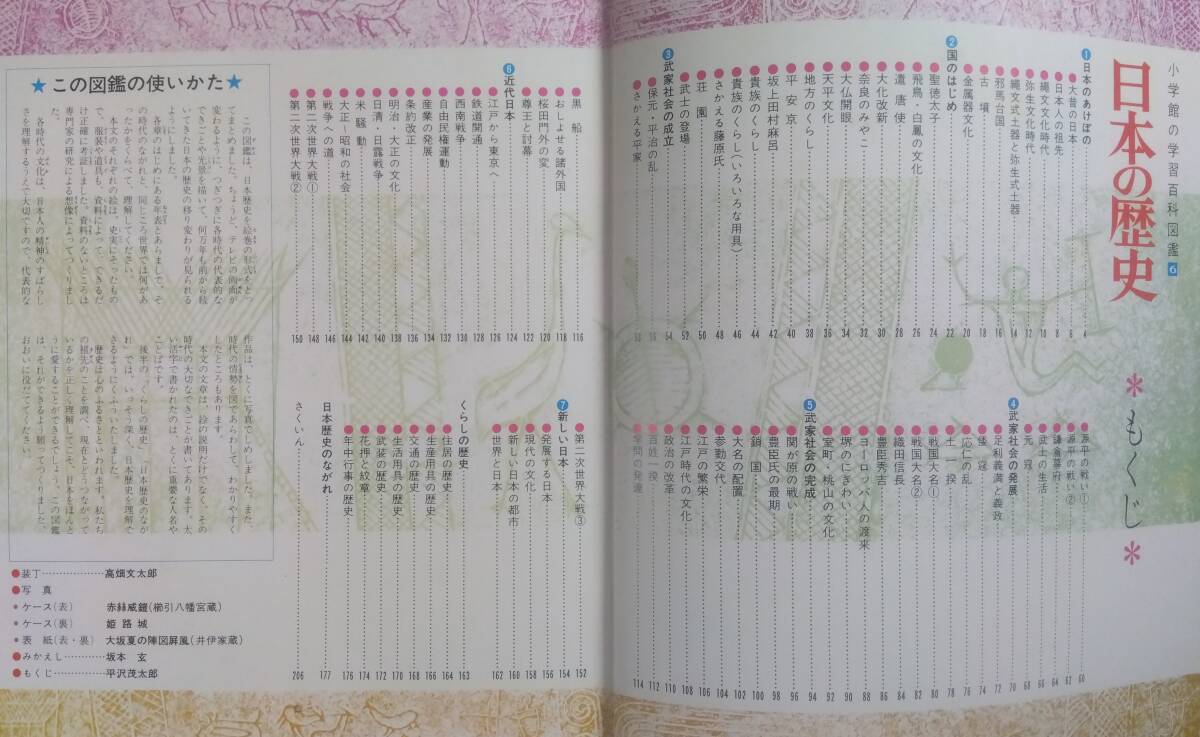 小学館の学習百科図鑑6
日本の歴史
＊もくじ＊
❶日本のあけぼの……4
●大昔の日本……6
●日本人の祖先……8
●縄文文化時代……10
●弥生文化時代……12
●縄文式土器と弥生式土器……14
●邪馬台国……16
●古墳……18
●金属器文化……20
❷国のはじめ……22
●聖徳太子……24
●飛鳥・白鳳の文化……26
●遣唐使……28
●大化改新……30
●奈良のみやこ……32
●大仏開眼……34
●天平文化……36
●地方のくらし……38
●平安京……40
●坂上田村麻呂……42
●貴族のくらし……44
●貴族のくらし(いろいろな用具)……46
●さかえる藤原氏……48
●荘園……50
●武士の登場……52
❸武家社会の成立……54
●保元・平治の乱……56
●さかえる平家……58
●源平の戦い①……60
●源平の戦い②……62
●鎌倉幕府……64
●武士の生活……66
●元寇……68
❹武家社会の発展……70
●足利義満と義政……72
●倭寇……74
●応仁の乱……76
●土一揆……78
●戦国大名①……80
●戦国大名②……82
●織田信長……84
●豊臣秀吉……86
●ヨーロッパ人の渡来……88
●堺のにぎわい……90
●室町・桃山の文化……92
❺武家社会の完成……94
●関が原の戦い……96
●豊臣氏の最期……98
●鎖国……100
●大名の配置……102
●参勤交代……104
●江戸の繁栄……106
●江戸時代の文化……108
●政治の改革……110
●百姓一揆……112
●学問の発達……114
●黒船……116
●おしよせる諸外国……118
●桜田門外の変……120
●尊王と討幕……122
❻近代日本……124
●江戸から東京へ……126
●鉄道開通……128
●西南戦争……130
●自由民権運動……132
●産業の発展……134
●条約改正……136
●明治・大正の文化……138
●日清・日露戦争……140
●米騒動……142
●大正〜昭和の社会……144
●戦争への道……146
●第二次世界大戦①……148
●第二次世界大戦②……150
●第二次世界大戦③……152
❼新しい日本……154
●発展する日本……156
●現代の文化……158
●新しい日本の都市……160
●世界と日本……162
くらしの歴史……163
●住居の歴史……164
●生産用具の歴史……166
●交通の歴史……168
●生活用具の歴史……170
●武装の歴史……172
●花押と紋章……174
●年中行事の歴史……176
日本歴史のながれ……177
さくいん……206
★この図鑑の使いかた★
この図鑑は、日本歴史を絵巻の形式をとっ
てまとめました。ちょうど、テレビの画面が
変わるように、つぎつぎに各時代の代表的な
できごとや光景を描いて、何万年も前から続
いてきた日本の歴史の移り変わりが見られる
ようにしました。
各章のはじめにある年表とあらまして、そ
の時代のながれと、同じころ世界では何があ
ったかをくらべて、理解してください。
本文のそれぞれの絵は、史実にそったもの
で、服装や道具も、資料によって、できるだ
け正確に考証しました。資料のないところは
専門家の研究による想像によってつくりまし
た。
各時代の文化は、日本人の精神のすばらし
さを理解するうえで大切ですので、代表的な
作品は、とくに写真でしめしました。また、
時代の情勢を図であらわして、わかりやすく
したところもあります。
本文の文章は、絵の説明だけでなく、その
時代の大切なできごとが書いてあります。太
い活字で書かれたのは、とくに重要な人名や
ことばです。
後半の「くらしの歴史」「日本歴史のなが
れ」では、いっそう深く、日本歴史を理解で
きるようにくふういたしました。
歴史は心のふるさとといわれます。私たち
の祖先のことを調べ、現在とどうつながって
いるかを正しく理解してこそ、日本をほんと
うに愛することができるでしょう。この図鑑
は、それができるよう願ってつくりました。
おおいに役だててください。
●装丁……高畑文太郎
●写真
＊ケース(表) 赤絲威鎧(櫛引八幡宮蔵)
＊ケース(裏) 姫路城
＊表紙(表・裏) 大坂夏の陣図屛風(井伊家蔵)
●みかえし……坂本玄
●もくじ……平沢茂太郎